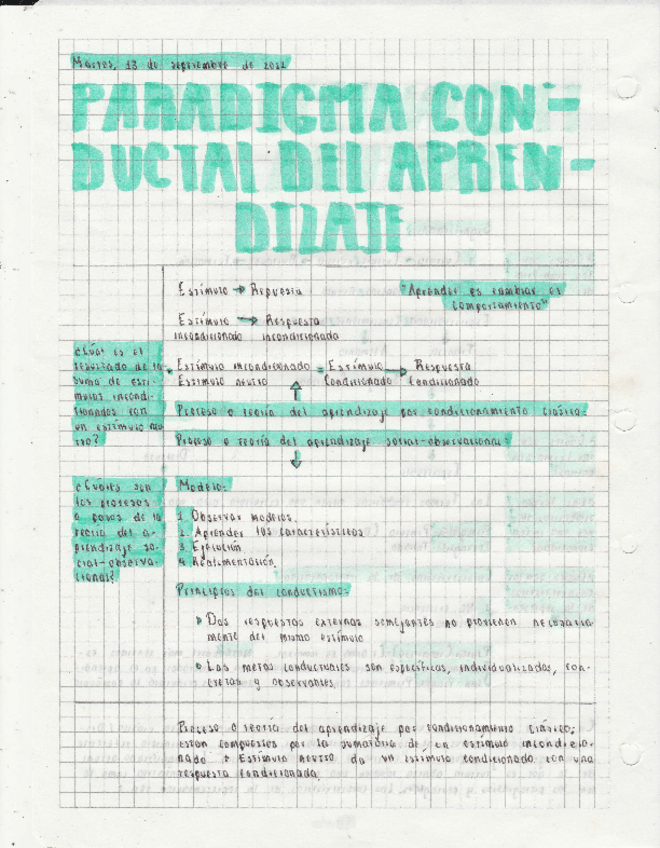 Martes, 13 de septiembre de 2022
PARADIGMA CON-
DUCTAL DEL APREN-
DIZAJE
Estímulo → Respuesta
"Aprender es cambiar el
comportamiento"
Estímulo → Respuesta
incondicionado incondicionada
¿Cuál es el
resultado de la
suma de estí-
mulos incondi-
cionados con
un estímulo neu
tro?
• Estímulo incondicionado = Estímulo → Respuesta
Estímulo neutro Condicionado Condicionado
↑
Proceso o teoría del aprendizaje por condicionamiento clásico.
Proceso o teoría del aprendizaje social-observacional:
↓
¿Cuáles son
los procesos
o pasos de la
teoría del a-
prendizaje so-
cial-observa-
cional?
Modelo:
1. Observar modelos.
2. Aprender las características
3. Ejecución
4. Realimentación
Principios del conductismo:
Dos respuestas externas semejantes no provienen necesaria
mente del mismo estímulo
Las metas conductuales son específicas, individualizadas, con-
cretas y observables
Proceso o teoría del aprendizaje por condicionamiento clásico;
están compuestos por la sumatoria de un estímulo incondicio-
nado + Estímulo neutro da un estímulo condicionado con una
respuesta condicionada